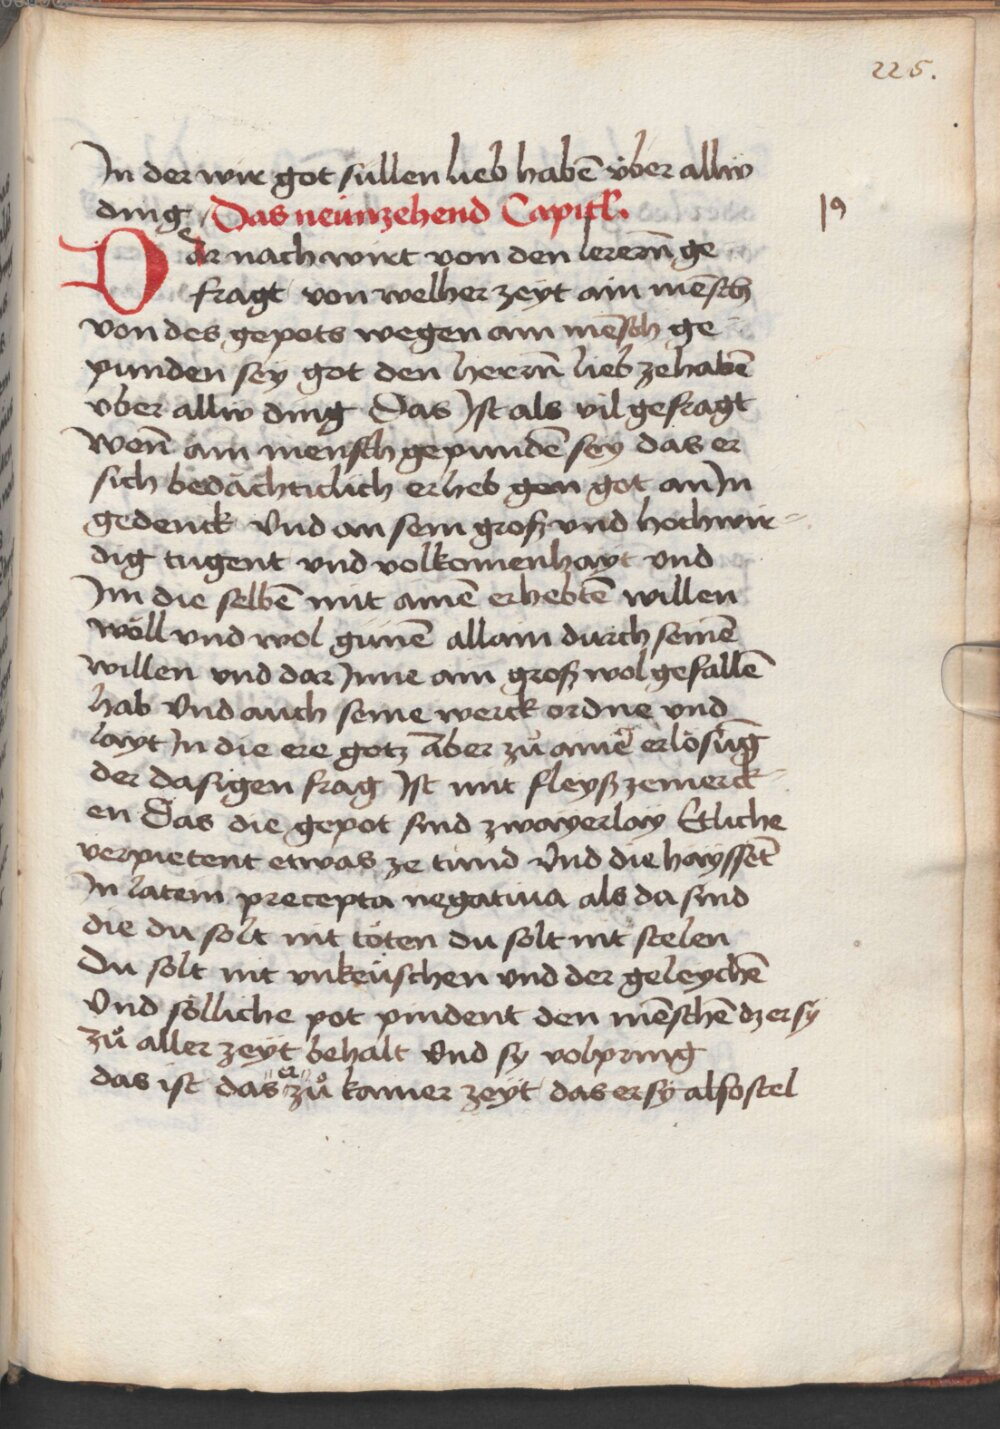 225.
In der wir got sullen lieb habē v̈ber alliu
ding Das neünzehend Capitl.
19
Dar nach wirt von den lerern̄ ge
fragt von welher zeyt ain mēsch
von des gepots wegen ain mēsch ge
punden sey got den herrn̄ lieb ze habē
vber alliu ding Das Ist als vil gefragt
Wen̄ ain mensch gepundē sey das er
sich bedächticlich erheb gen got an In
gedenck Vnd an sein groß vnd hochwir=
dig tugent vnd volkomenhayt Vnd
Im die selbē mit ainē erhebtē willen
wöll vnd wol günē allain durch seinē
willen vnd dar Inne ain groß wolgefallē
hab Vnd auch seine werck ordne vnd
layt In die ere gotz Aber zů ainē erlösūg
der dasigen frag Ist mit fleyß ze merck
en Das die gepot sind zwayerlay Etliche
verpietent etwas ze tund Vnd die hayssēt
In latein precepta negatiua als da sind
die du solt nit töten du solt nit stelen
Du solt nit vnkeüschen vnd der geleychē
Vnd sölliche pot pindent den mēschē dz er sy
zů aller zeyt behalt Vnd sy volpring
das ist das er zů kainer zeyt das er sy also stel